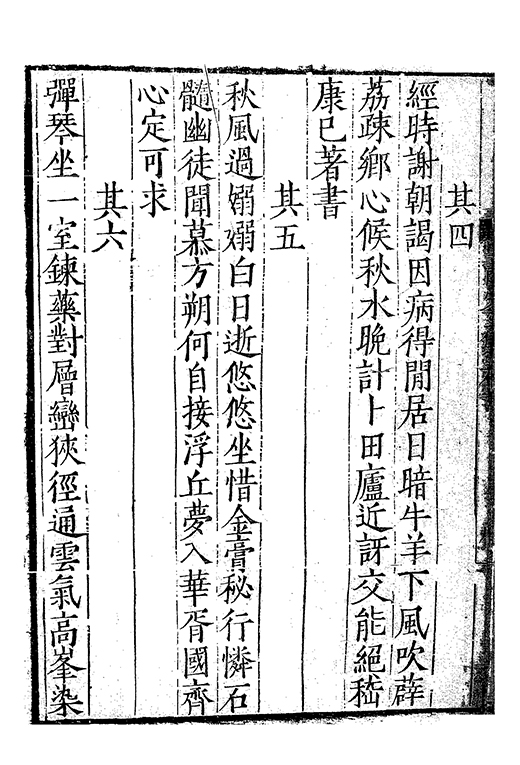 其四
經時謝朝謁因病得閒居日暗牛羊下風吹薜
荔疎鄉心候秋水晚計卜田廬近訝交能絕嵇
康已著書
其五
秋風過嫋嫋白日逝悠悠坐惜金膏秘行憐石
髓幽徒聞慕方朔何自接浮丘夢入華胥國齊
心定可求
其六
彈琴坐一室鍊藥對層巒狹徑通雲氣高峯染